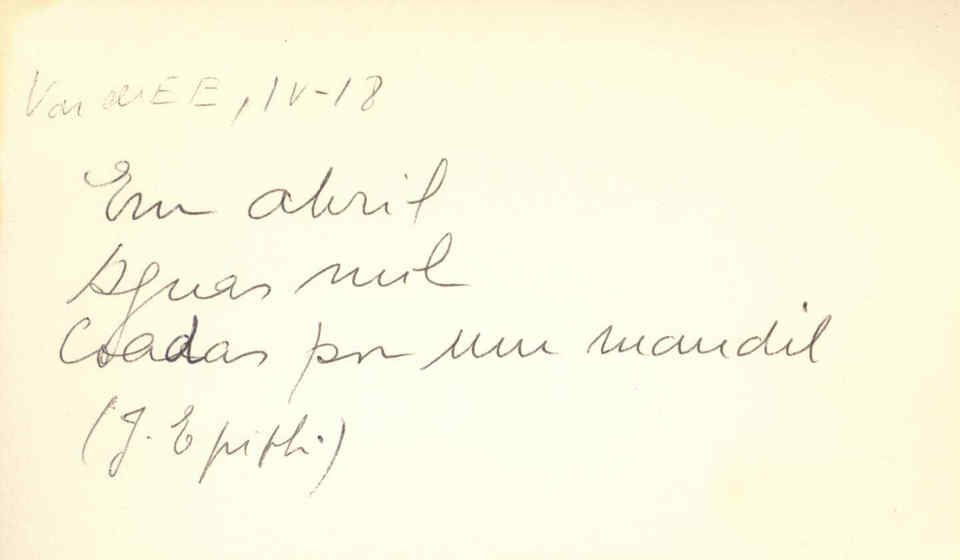 Var de EE, IV-18
Em abril
Aguas mil
Coadas por um mandil
(J. Epiph.)